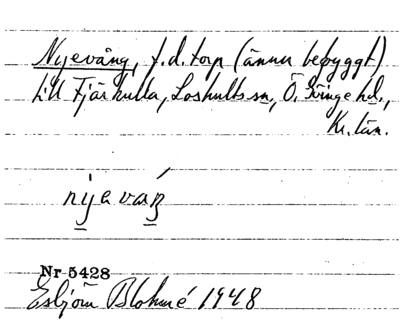 Nyevång, f.d. torp (ännu bebyggt)
till Fjärhulla, Loshults sn, Ö. Göinge hd.,
Kr. län.
nyevaŋ
Nr 5428
Esbjörn Blohmé 1948